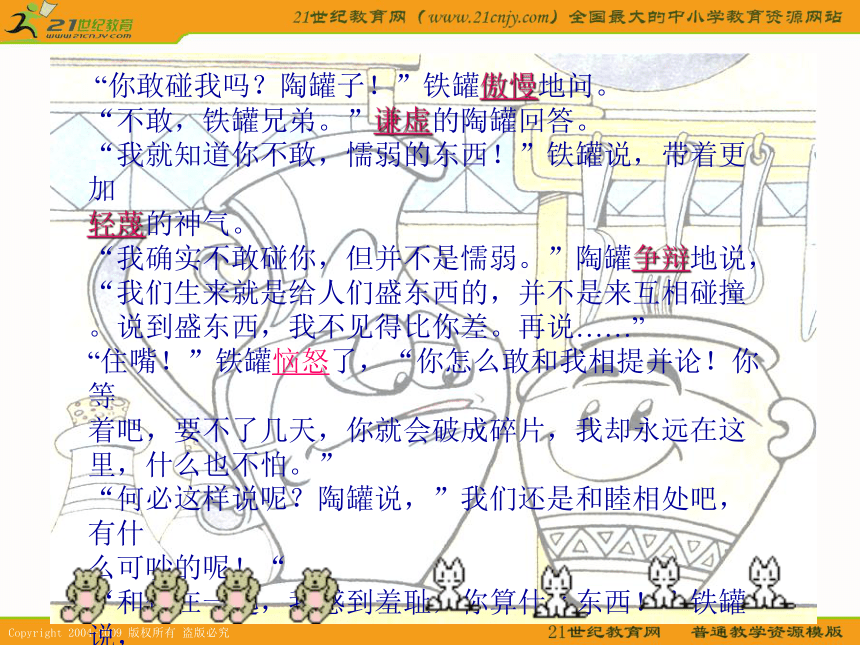 21世纪教育网
www.21cnjy.com
21世纪教育网（www.21cnjy.com）全国最大的中小学教育资源网站
“你敢碰我吗？陶罐子！”铁罐傲慢地问。
“不敢，铁罐兄弟。”谦虚的陶罐回答。
“我就知道你不敢，懦弱的东西！”铁罐说，带着更
加
轻蔑的神气。
“我确实不敢碰你，但并不是懦弱。”陶罐争辩地说，
“我们生来就是给人们盛东西的，并不是来互相碰撞
。说到盛东西，我不见得比你差。再说……”
“住嘴！”铁罐恼怒了，“你怎么敢和我相提并论！你
等
着吧，要不了几天，你就会破成碎片，我却永远在这
里，什么也不怕。”
“何必这样说呢？陶罐说，”我们还是和睦相处吧，
有什
么可吵的呢！“
“和 在一 ， 感到羞耻，你算什 东西！”铁罐
说，
Copyright 200 09 版权所有 盗版必究
21世纪教育网 普通教学资源模版